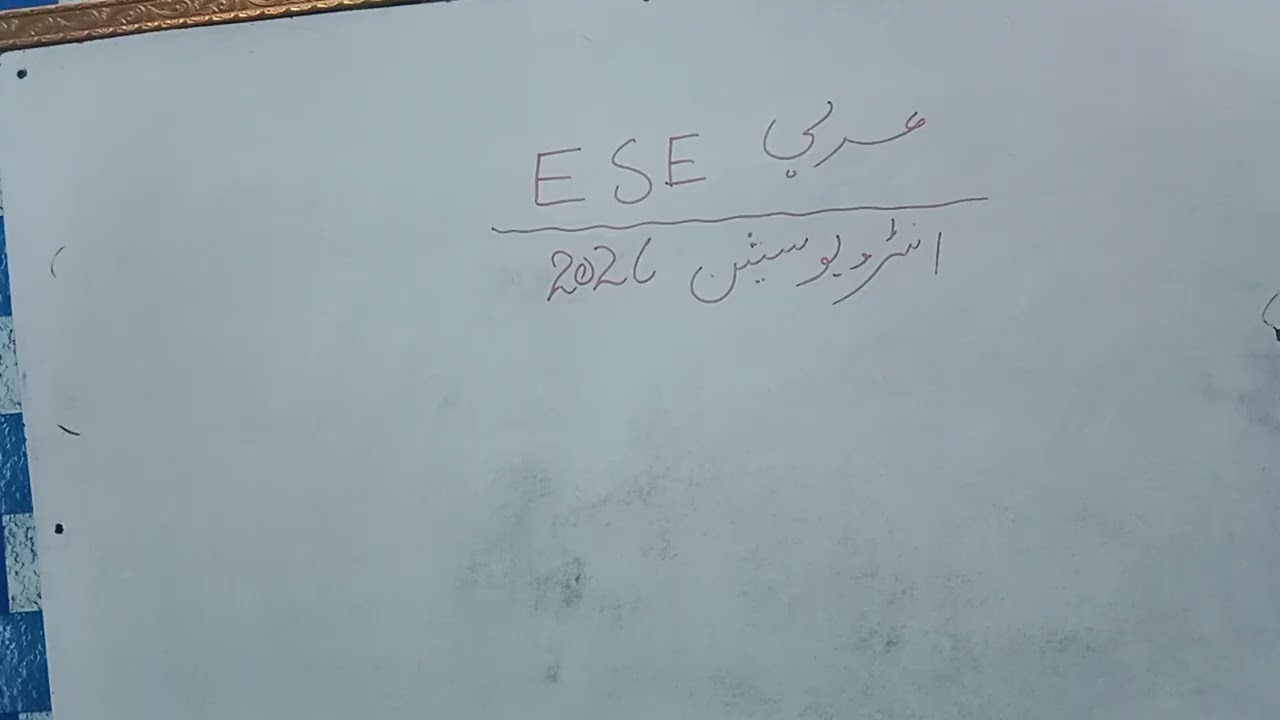 عربی ESE
انٹرویو سیشن 2026